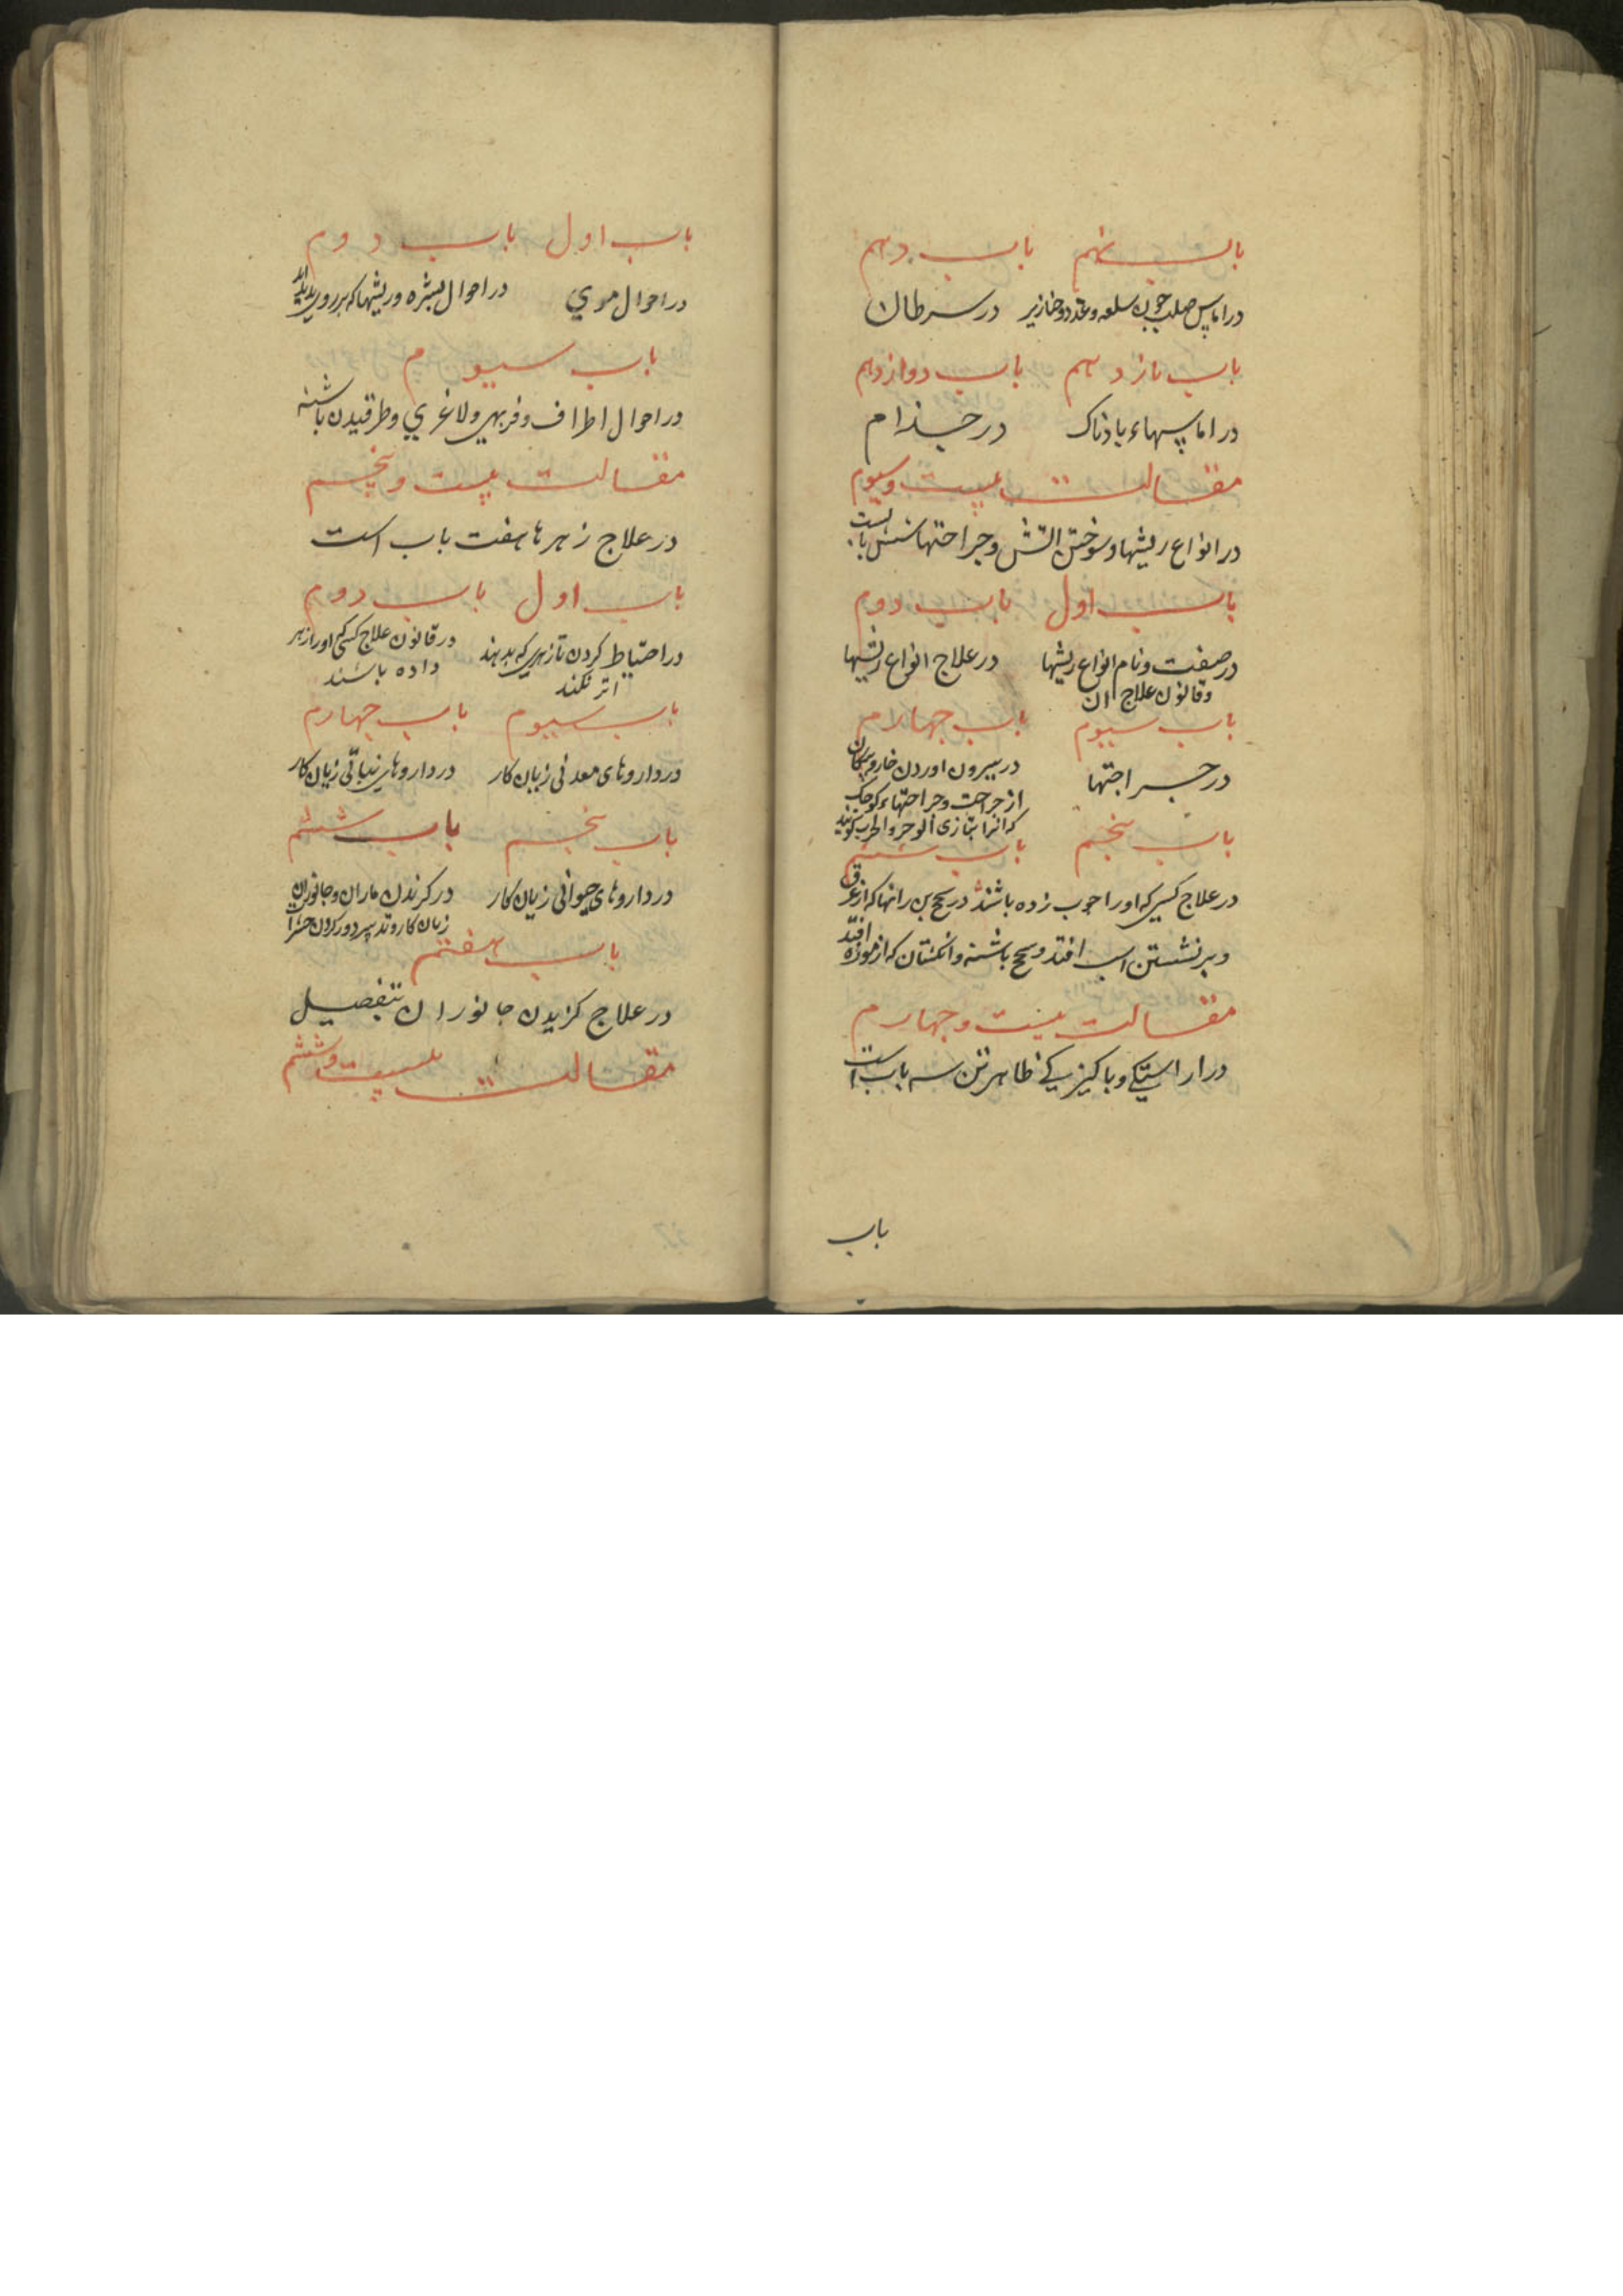 باب نهم باب دهم
در اماس صلب چون سلعه و غدد و خنازیر در سرطان
باب یازدهم باب دوازدهم
در اماسهاء بادناک در جذام
مقالت بیست و سیوم
در انواع ریشها و سوختن اتش و جراحتها شش باب است
باب اول باب دوم
در صفت و نام انواع ریشها در علاج انواع ریشها
وقانون علاج ان
باب سیوم باب چهارم
در جراحتها در بیرون اوردن خار و پیکان
از جراحت و جراحتهاء کوچک
که انرا بتازی
باب پنجم باب ششم
در علاج کسی که اورا چوب زده باشند در سحج بن رانها که از عرق
و بر نشستن اسب افتد و سحج باشنه و انکشتان که از موزه افتد
مقالت بیست و چهارم
در اراستکی و باکیزکی ظاهر تن سه باب است
باب
باب اول باب دوم
در احوال موی در احوال بشره و ریشها که بر روی پدید اید
باب سیوم
در احوال اطراف و فربهی و لاغری و طرقیدن باشنه
مقالت بیست و پنجم
در علاج زهرها هفت باب است
باب اول باب دوم
در احتیاط کردن تا زهری که بدهند در قانون علاج کسی که اورا زهر
اثر نکند داده باشند
باب سیوم باب چهارم
در داروهای معدنی زیان کار در داروهای نباتی زیان کار
باب پنجم باب ششم
در داروهای حیوانی زیان کار در کزندن ماران و جانوران
زیان کار و تدبیر دور کردن حشرات
باب هفتم
در علاج کزیدن جانوران بتفصیل
مقالت بیست و ششم